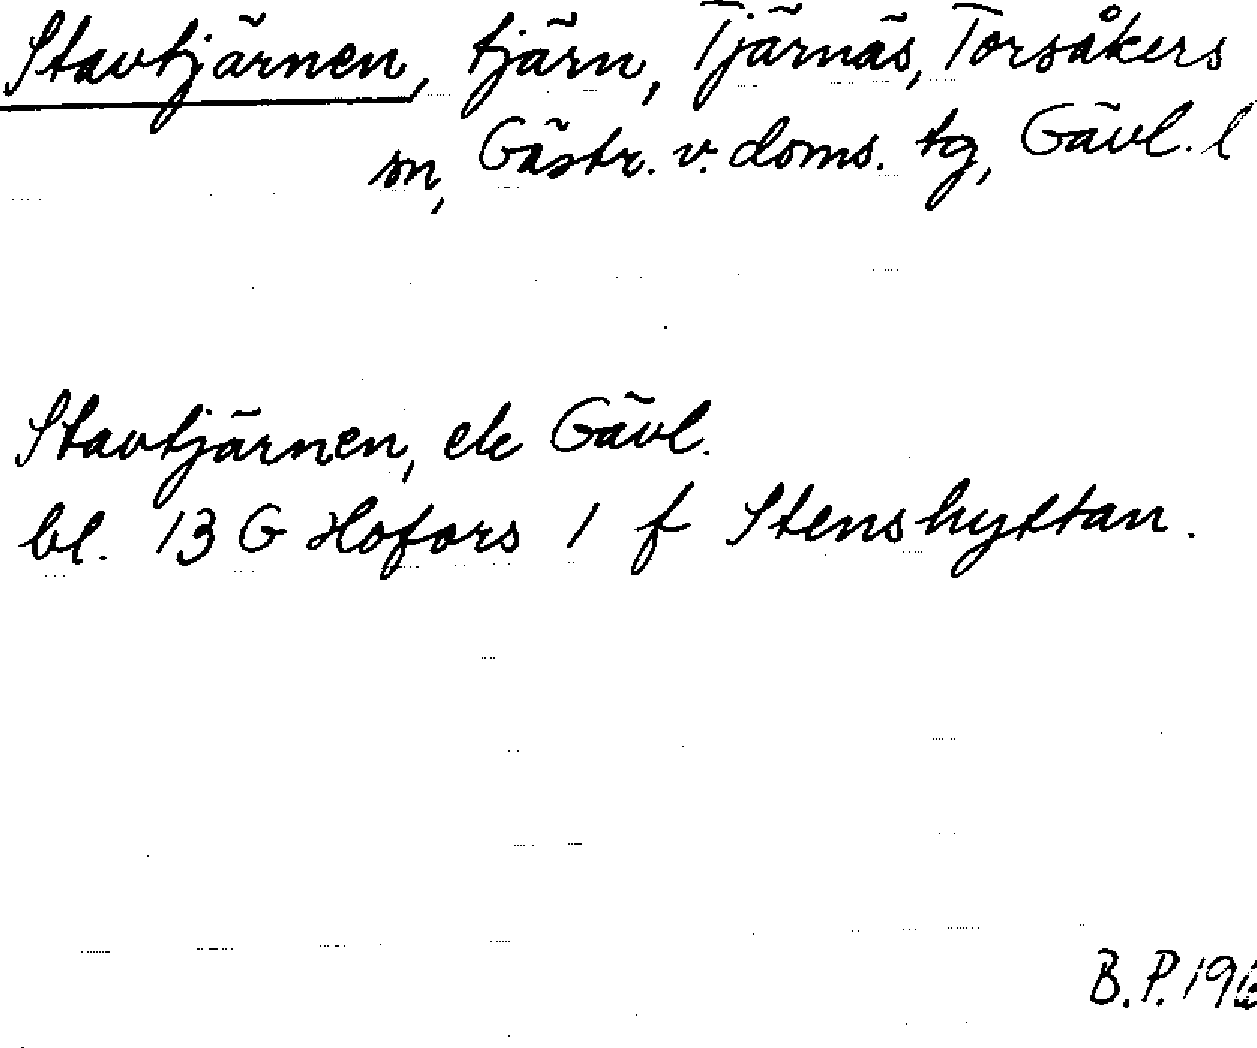 Stavtjärnen, tjärn, Tjärnäs, Torsåkers
sn, Gästr. v. doms. tg, Gävl. l
Stavtjärnen, ek Gävl.
bl. 13 G Hofors 1 f Stenshyttan.
B.P. 196